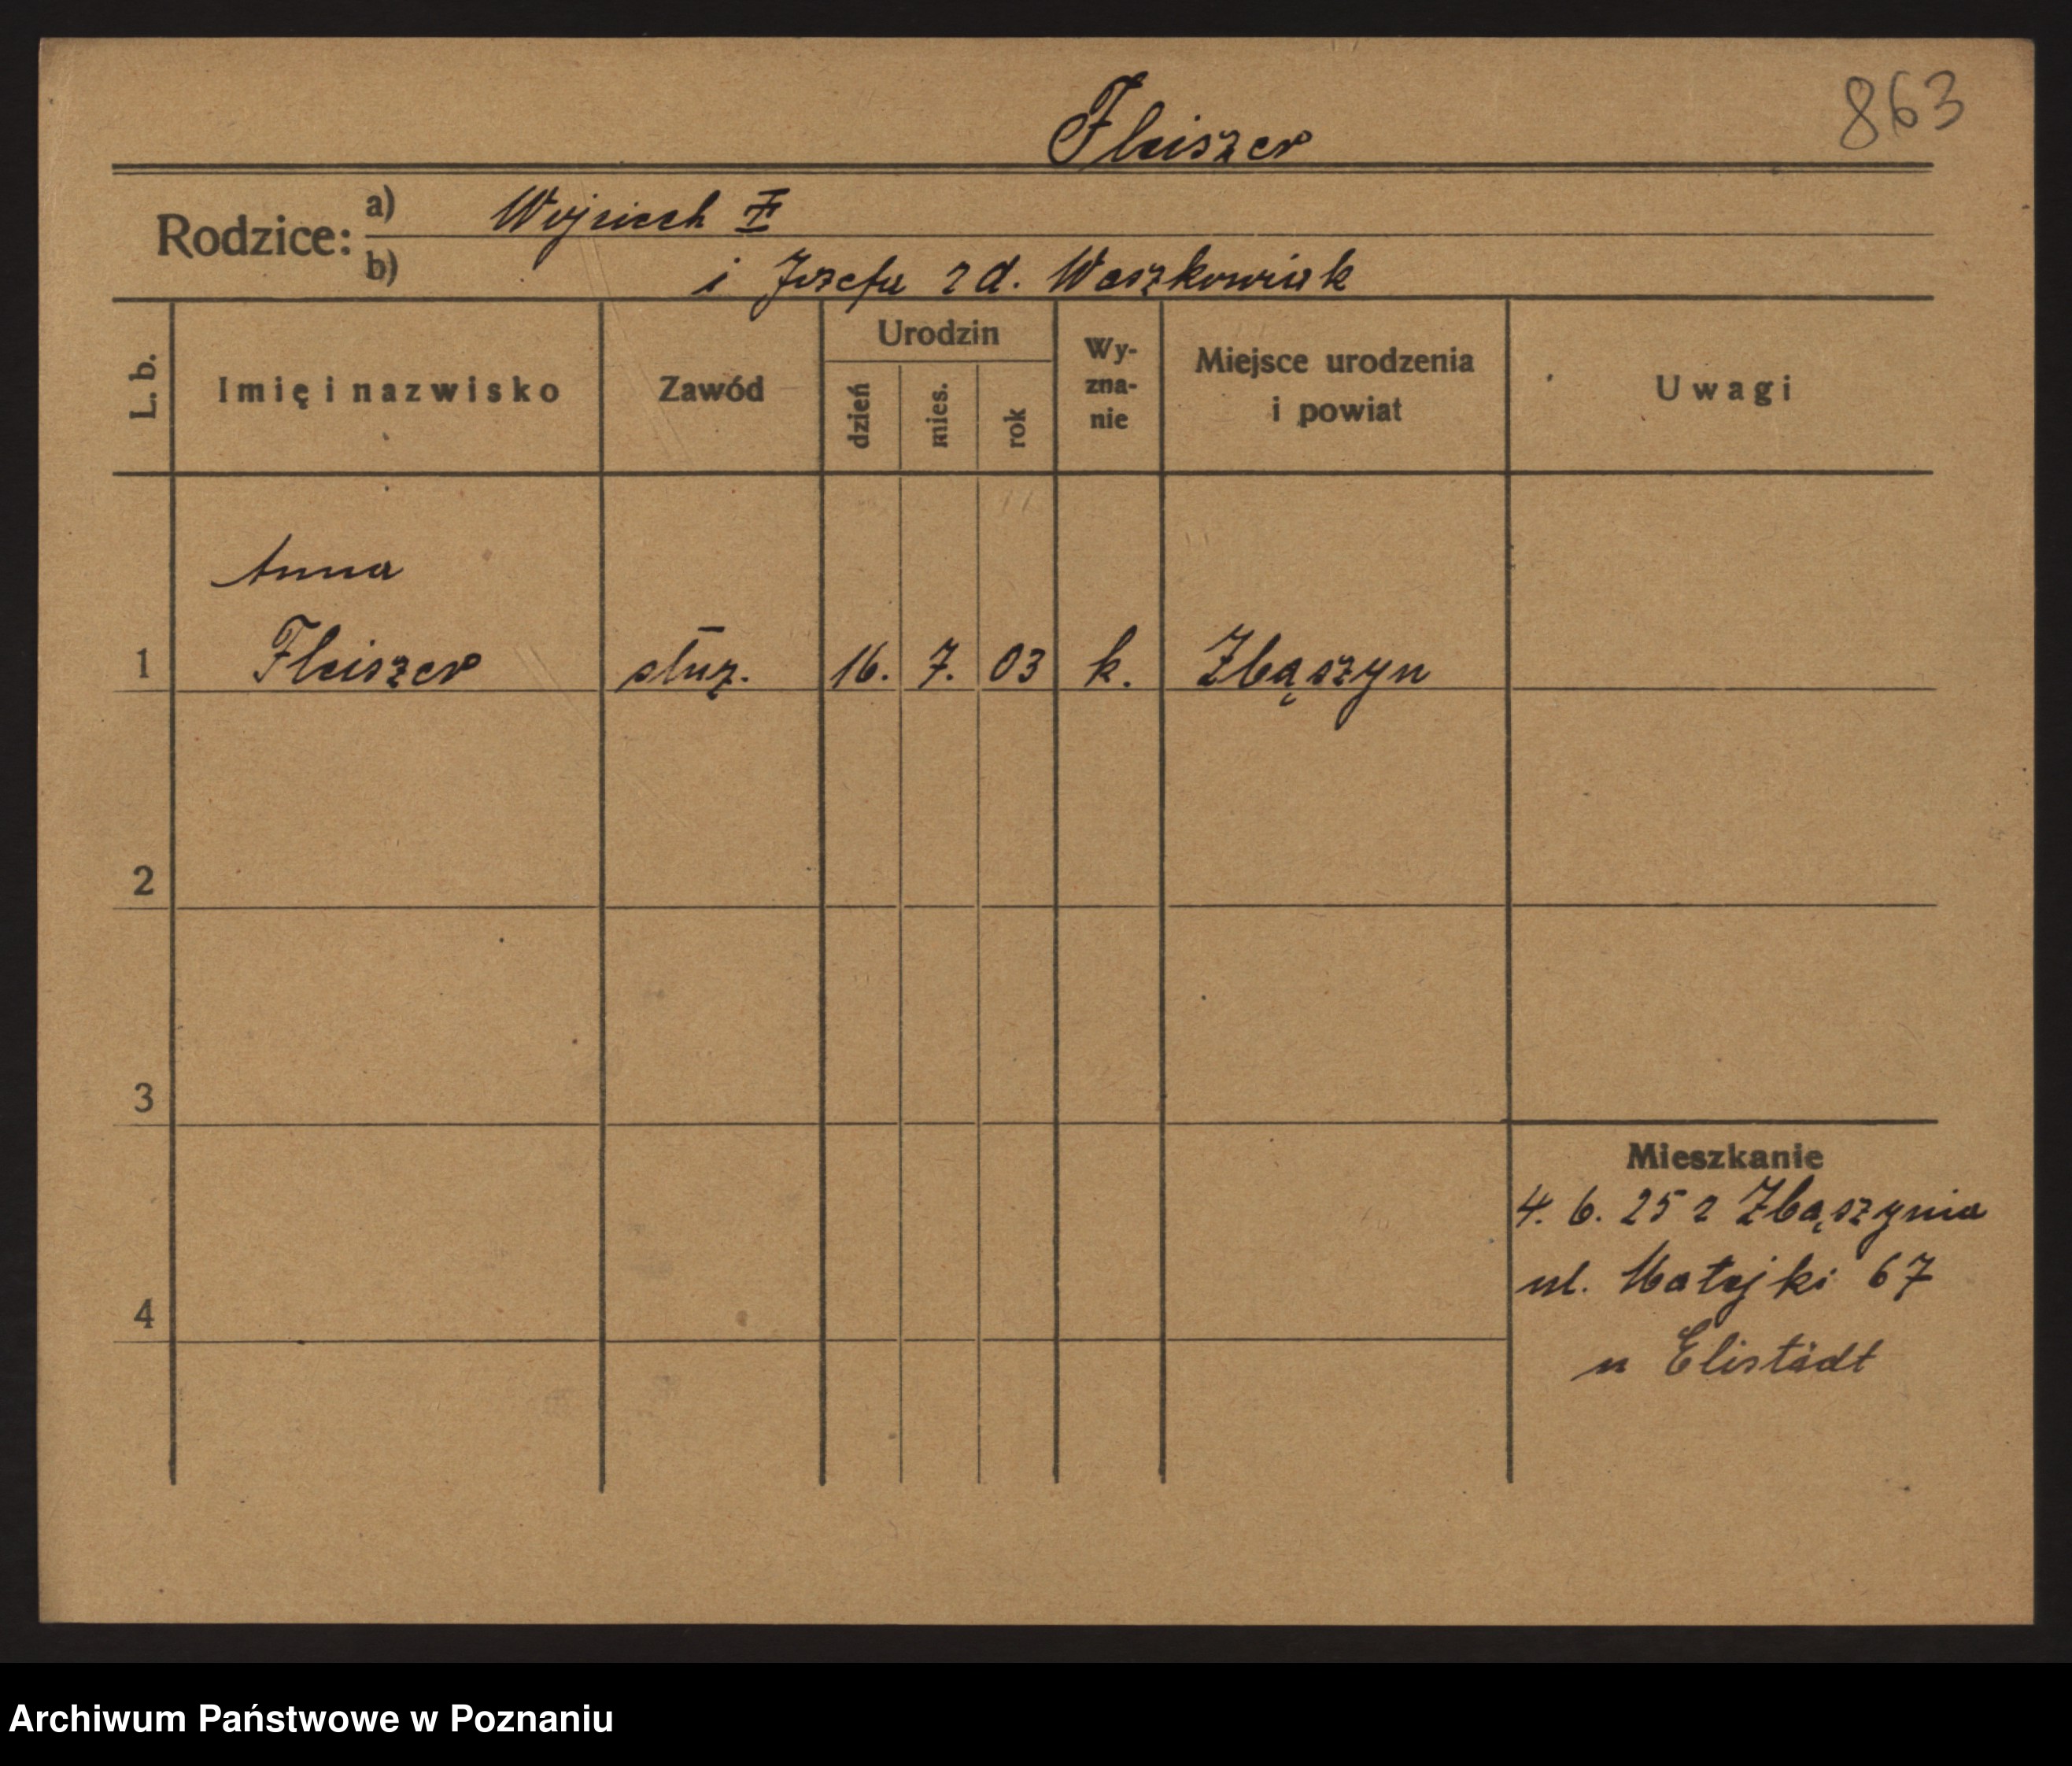 863
Fleiszer
Rodzice: a) Wojciech F.
b) i Józefa z d. Waszkowiak
L. b. Imię i nazwisko Zawód Urodzin dzień mies. rok Wy-zna-nie Miejsce urodzenia i powiat Uwagi
Anna
1 Fleiszer służ. 16. 7. 03 k. Zbąszyn
2
3
Mieszkanie
4. 6. 25 z Zbąszynia
ul. Matejki 67
4
u Elistädt
Archiwum Państwowe w Poznaniu